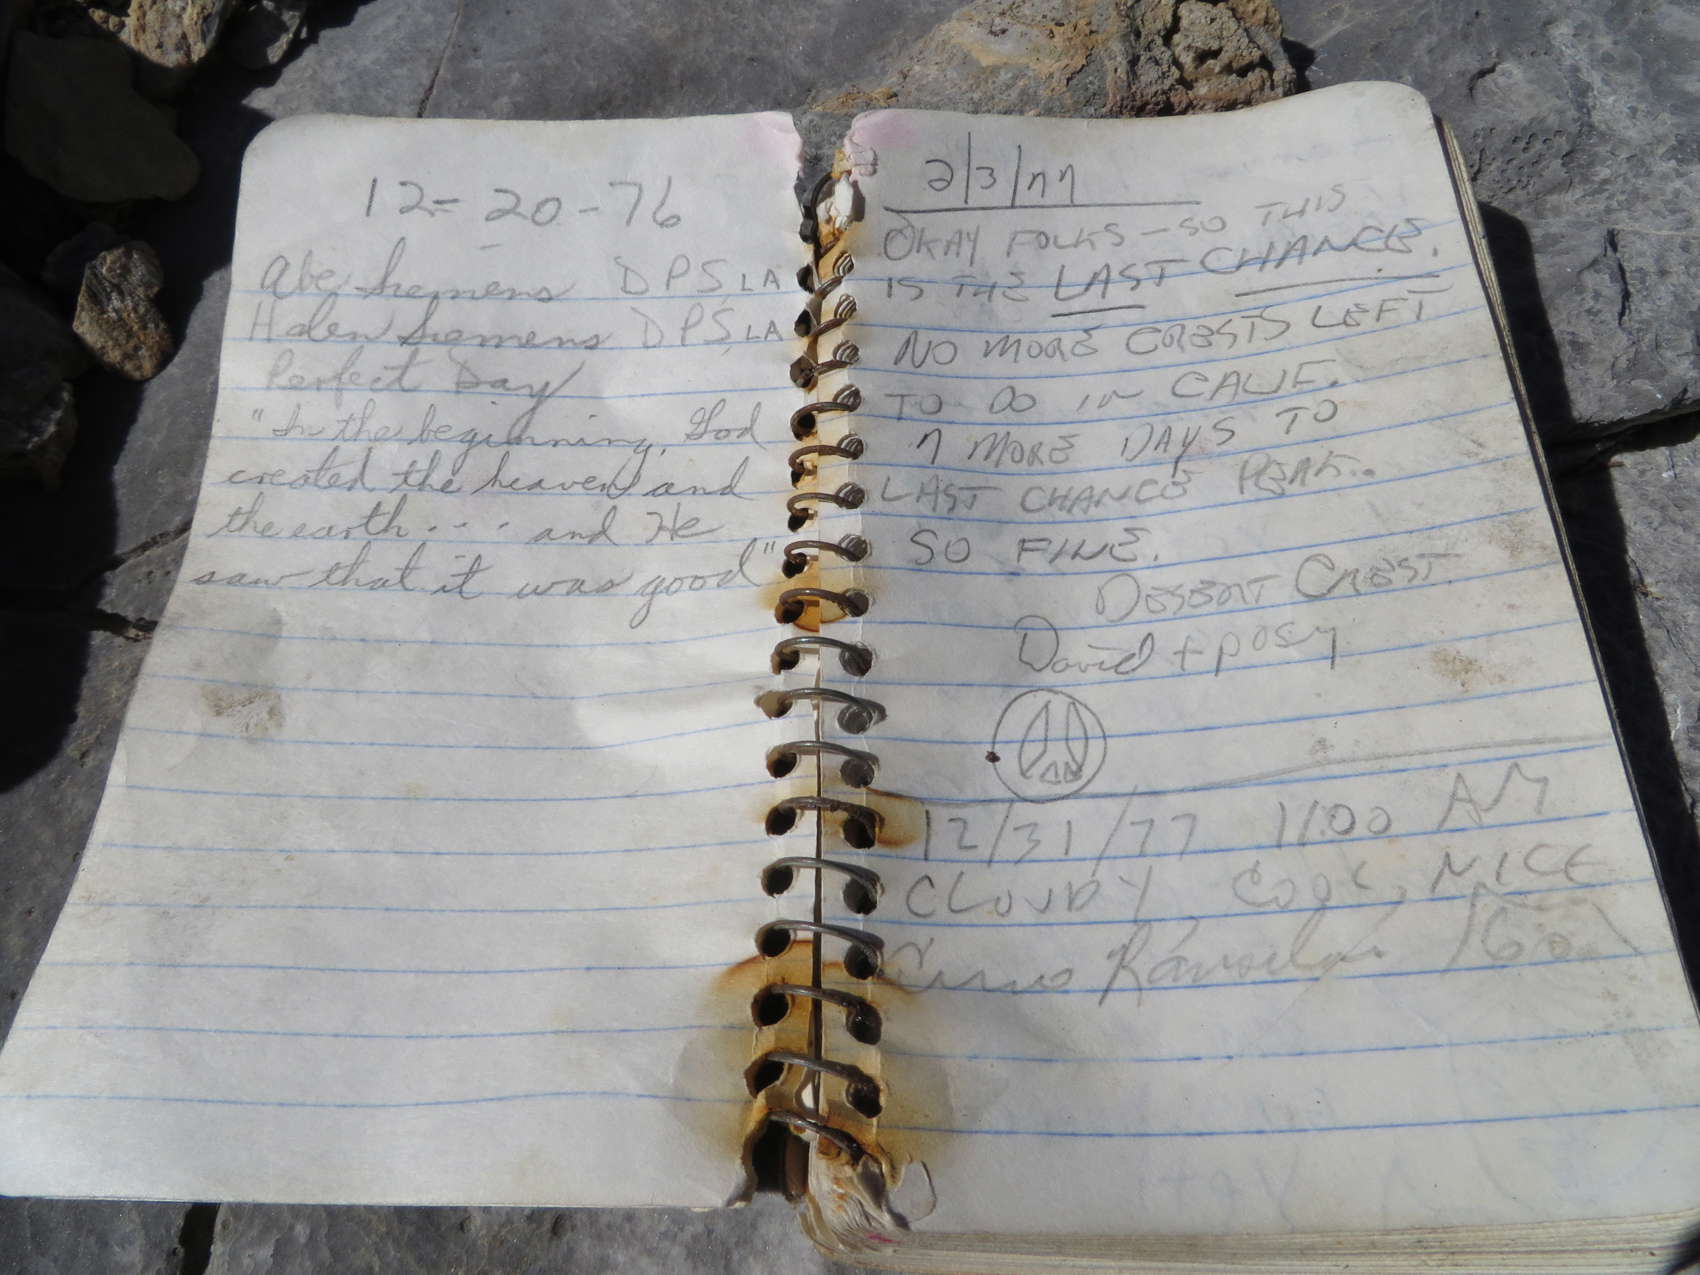 12-20-76
Abe Siemens DPS, LA
Helen Siemens DPS, LA
Perfect Day
"In the beginning, God
created the heaven and
the earth . . . . and He
saw that it was good"
2/3/77
OKAY FOLKS - SO THIS
IS THE LAST CHANCE.
NO MORE CRESTS LEFT
TO DO IN CALIF.
7 MORE DAYS TO
LAST CHANCE PEAK..
SO FINE.
DESERT CREST.
David + posy
12/31/77 11:00 AM
CLOUDY, COOL, NICE